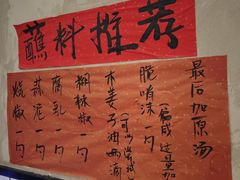 蘸料推荐
烧椒一勺
蒜泥一勺
腐乳一勺
糊辣椒一勺
木姜子油两滴
脆哨沫一勺
(偏咸适量加
最后加原汤